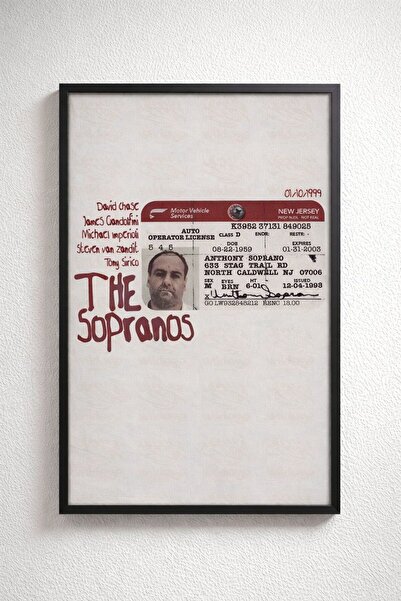 01/10/1999
David chase
James Gandolfini
Michael imperioli
Steven van zandt
Tony Sirico
THE
Sopranos
Motor Vehicle
Services
NEW JERSEY
PROP N.J.DL NOT REAL
K3952 37131 849025
AUTO
OPERATOR LICENSE
CLASS D
ENDR:
RESTR: -
5 4 5
DOB
08-22-1959
EXPIRES
01-31-2003
ANTHONY SOPRANO
633 STAG TRAIL RD
NORTH CALDWELL NJ 07006
SEX EYES HT ISSUED
M BRN 6-01 12-04-1993
x Anthony Soprano
GO LW932848212 RENC 18.00